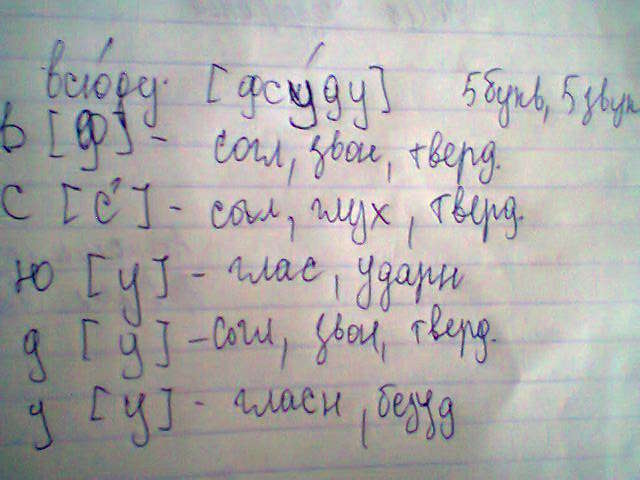 всю́ду. [фсу́ду] 5букв, 5звук
в [ф] - согл, звон, тверд.
с [с'] - согл, глух, тверд.
ю [у] - глас, ударн
д [у] - согл, звон, тверд.
у [у] - гласн, безуд